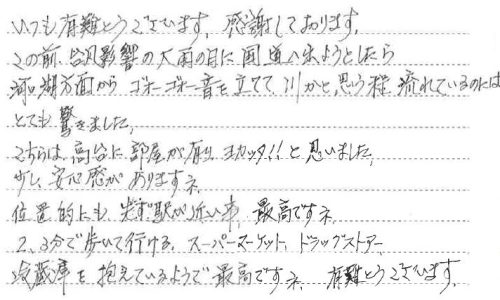 いつも有難とうございます。感謝しております。
この前、台風影響の大雨の日に国道へ出ようとしたら
河口湖方面からゴーゴー音を立てて、川かと思う程、流れているのには
とても驚きました。
こちらは、高台に部屋が有り、ヨカッタ!!と思いました。
少し、安心感がありますネ。
位置的にも、先ず駅が近い事、最高ですネ。
2、3分で歩いて行ける。スーパーマーケット、ドラッグストアー、
冷蔵庫を抱えているようで最高ですネ。有難とうございます。